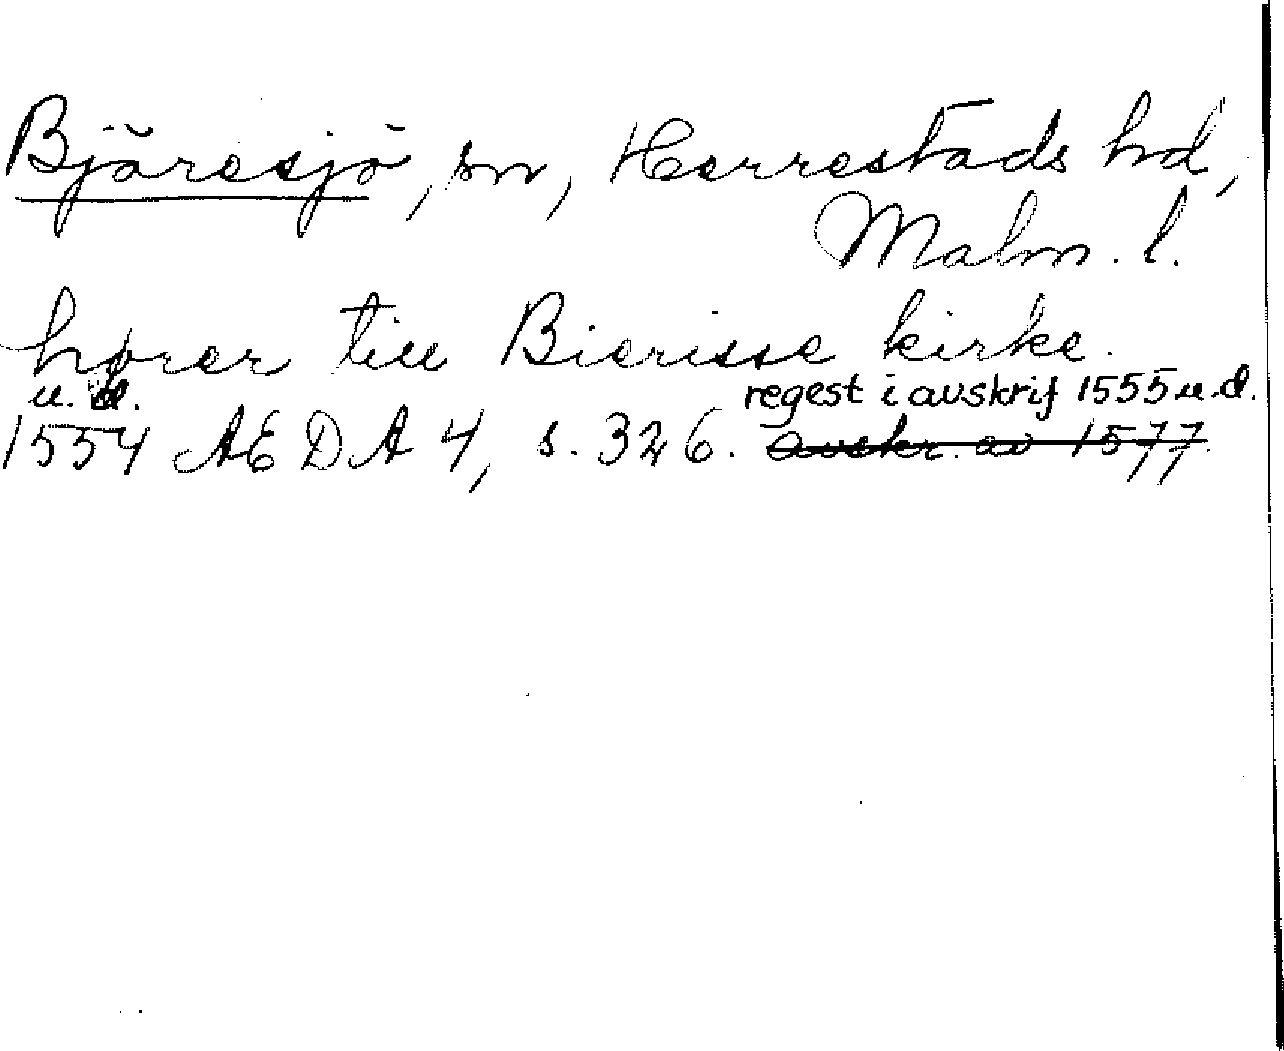 Bjäresjö, sn, Herrestads hd,
Malm. l.
hører till Bierisse kirke.
u. d. regest i avskrif 1555 u.d.
1554 AEDA 4, s. 326. avskr. av 1577.